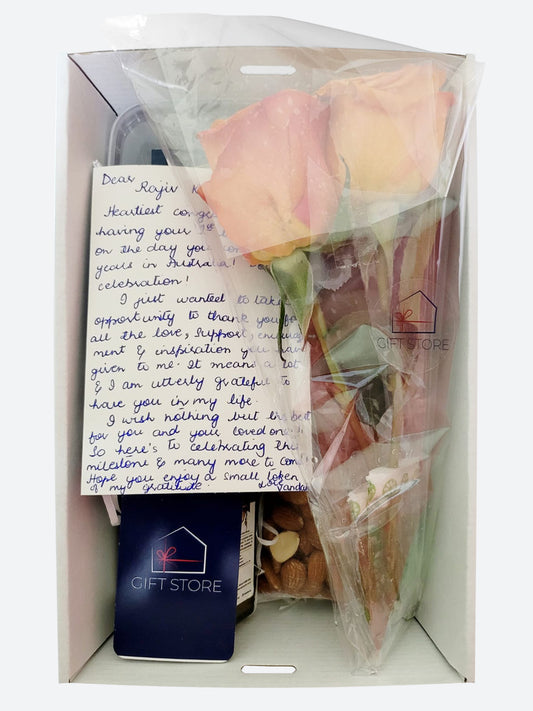 Dear
Rajiv
Heartiest
having your 1st
on the day you
years in Australia!
celebration!
I just wanted to take
opportunity to thank you for
all the love, support,
ment & inspiration you
given to me. It means a lot
& I am utterly grateful to
have you in my life.
I wish nothing but the best
for you and your loved
So here's to celebrating this
milestone & many more to come
Hope you enjoy a small token
of my gratitude.
GIFT STORE
GIFT STORE